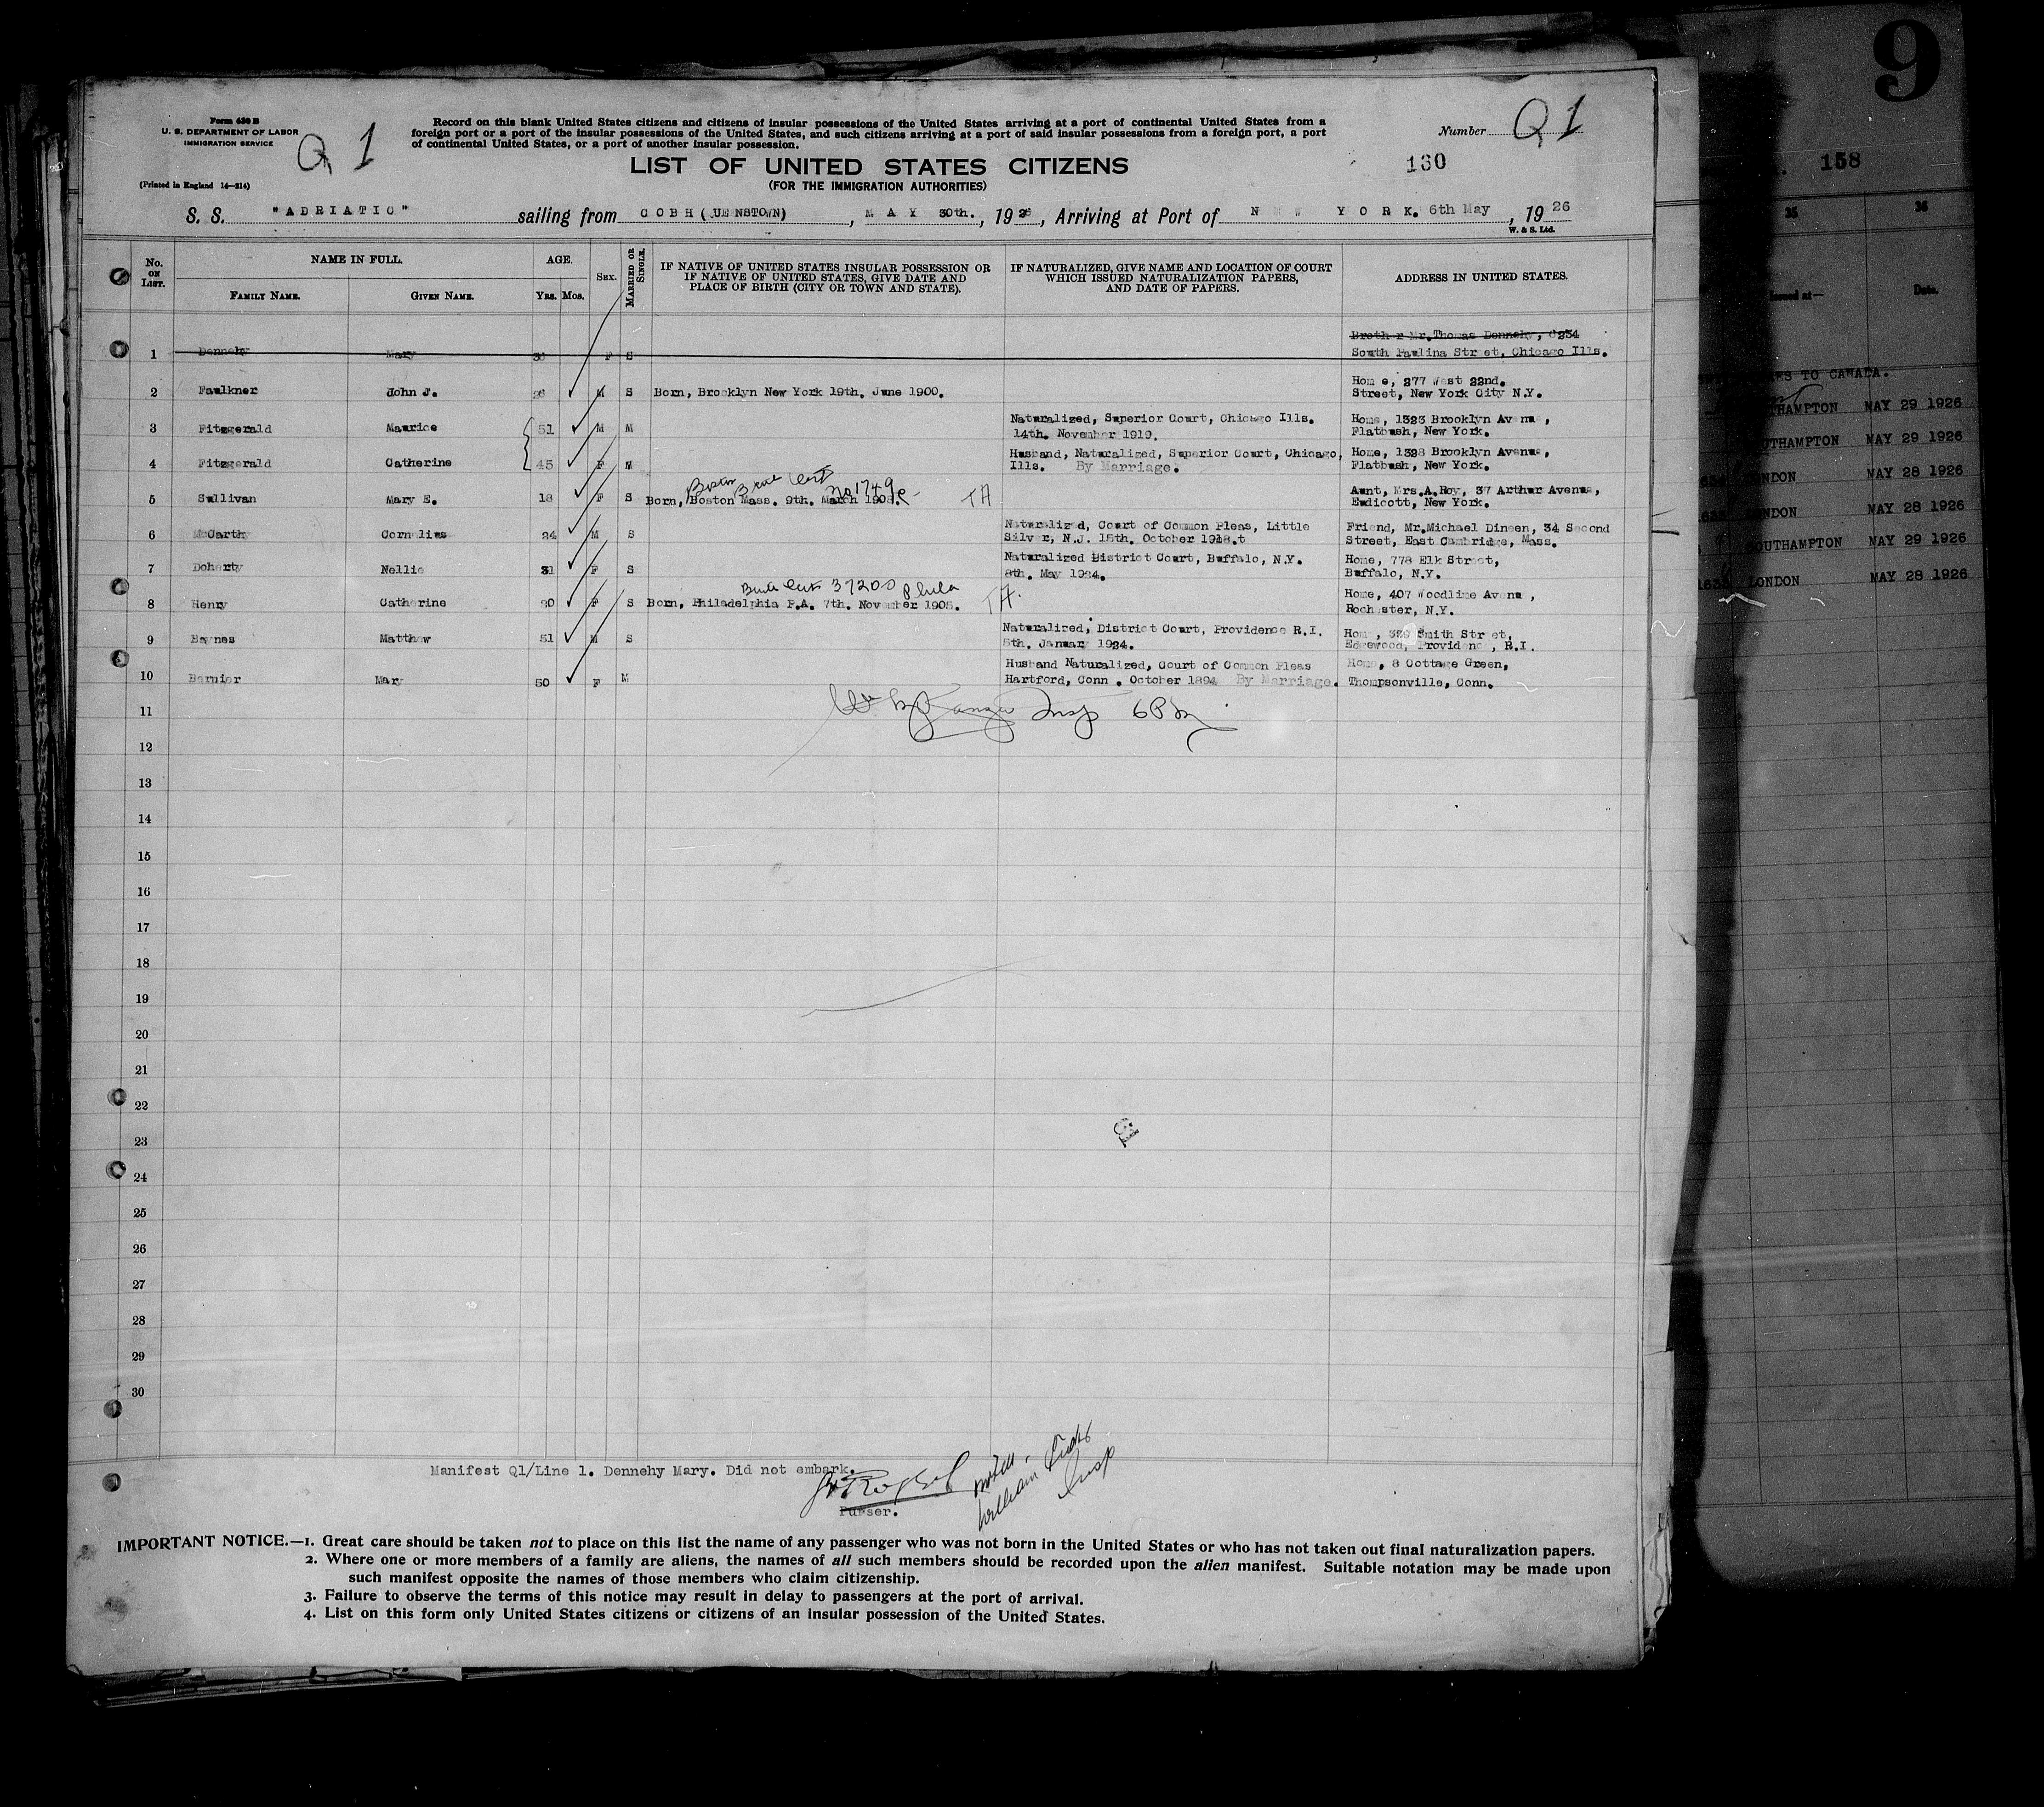 9
Form 630 B
U. S. DEPARTMENT OF LABOR
IMMIGRATION SERVICE
Q 1
(Printed in England 14—214)
Record on this blank United States citizens and citizens of insular possessions of the United States arriving at a port of continental United States from a
foreign port or a port of the insular possessions of the United States, and such citizens arriving at a port of said insular possessions from a foreign port, a port
of continental United States, or a port of another insular possession.
Number Q 1
LIST OF UNITED STATES CITIZENS
(FOR THE IMMIGRATION AUTHORITIES)
160
158
S. S. "ADRIATIC" sailing from COBH (QUEENSTOWN), MAY 30th., 1926, Arriving at Port of NEW YORK. 6th May, 1926
W. & S. Ltd.
No. ON LIST. NAME IN FULL. AGE. SEX. MARRIED OR SINGLE. IF NATIVE OF UNITED STATES INSULAR POSSESSION OR IF NATIVE OF UNITED STATES, GIVE DATE AND PLACE OF BIRTH (CITY OR TOWN AND STATE). IF NATURALIZED, GIVE NAME AND LOCATION OF COURT WHICH ISSUED NATURALIZATION PAPERS, AND DATE OF PAPERS. ADDRESS IN UNITED STATES.
FAMILY NAME. GIVEN NAME. YRS. MOS.
Brother Mr.Thomas Dennehy, 6234
1 Dennehy Mary F S South Paulina Street, Chicago Ills.
2 Faulkner John J. M S Born, Brooklyn New York 19th. June 1900. Home, 277 West 22nd.
Street, New York City N.Y.
3 Fitzgerald Maurice 51 M M Naturalized, Superior Court, Chicago Ills. Home, 1323 Brooklyn Avenue,
14th. November 1919. Flatbush, New York.
4 Fitzgerald Catherine 45 F M Husband, Naturalized, Superior Court, Chicago, Home, 1328 Brooklyn Avenue,
Ills. By Marriage. Flatbush, New York.
Boston Birth Cert no 1749
5 Sullivan Mary E. 18 F S Born, Boston Mass. 9th. March 1908. TA Aunt, Mrs.A.Roy, 37 Arthur Avenue,
Endicott, New York.
6 McCarthy Cornelius 24 M S Naturalized, Court of Common Pleas, Little Friend, Mr.Michael Dineen, 34 Second
Silver, N.J. 15th. October 1918.t Street, East Cambridge, Mass.
7 Doherty Nellie 31 F S Naturalized District Court, Buffalo, N.Y. Home, 778 Elk Street,
8th. May 1924. Buffalo, N.Y.
Birth Cert 37200 Phila
8 Henry Catherine 20 F S Born, Philadelphia P.A. 7th. November 1905. TA. Home, 407 Woodline Avenue,
Rochester, N.Y.
9 Baynes Matthew 51 M S Naturalized, District Court, Providence R.I. Home, Smith Street,
5th. January 1924. Edgewood, Providence, R.I.
10 Bernier Mary 50 F M Husband Naturalized, Court of Common Pleas Home, 8 Cottage Green,
Hartford, Conn. October 1894 By Marriage. Thompsonville, Conn.
Insp
11
12
13
14
15
16
17
18
19
20
21
22
23
24
25
26
27
28
29
30
Manifest Q1/Line 1. Dennehy Mary. Did not embark.
Purser.
William
Insp
IMPORTANT NOTICE.—1. Great care should be taken not to place on this list the name of any passenger who was not born in the United States or who has not taken out final naturalization papers.
2. Where one or more members of a family are aliens, the names of all such members should be recorded upon the alien manifest. Suitable notation may be made upon
such manifest opposite the names of those members who claim citizenship.
3. Failure to observe the terms of this notice may result in delay to passengers at the port of arrival.
4. List on this form only United States citizens or citizens of an insular possession of the United States.
25 26
Issued at— Date.
TO CANADA.
THAMPTON MAY 29 1926
UTHAMPTON MAY 29 1926
NDON MAY 28 1926
ONDON MAY 28 1926
SOUTHAMPTON MAY 29 1926
LONDON MAY 28 1926